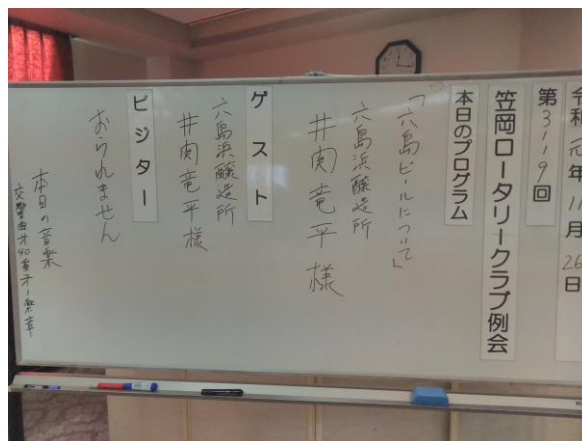 令和元年11月26日
第3119回
笠岡ロータリークラブ例会
本日のプログラム
「六島ビールについて」
六島浜醸造所
井関竜平様
ゲスト
六島浜醸造所
井関竜平様
ビジター
おられません
本日の音楽
交響曲才40番才一楽章